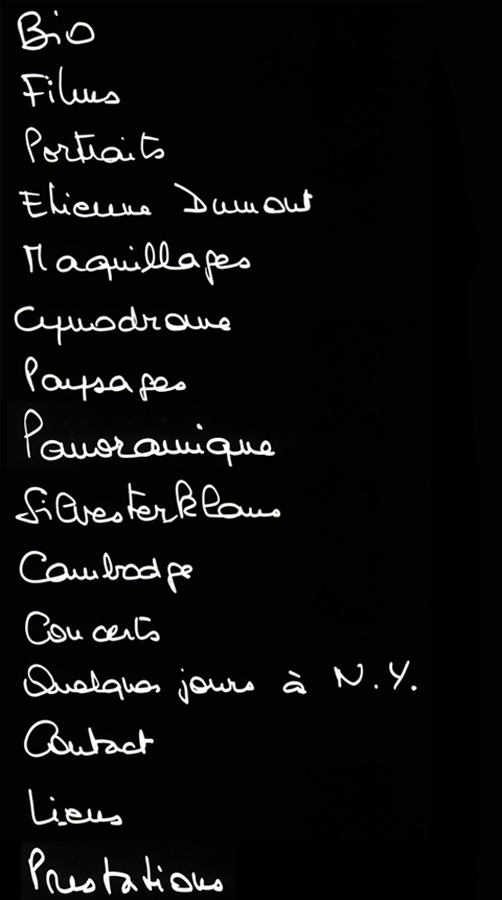 Bio
Films
Portraits
Etienne Dumont
Maquillages
Cynodrome
Paysages
Panoramique
Silvesterklaus
Cambodge
Concerts
Quelques jours à N.Y.
Contact
Liens
Prestations